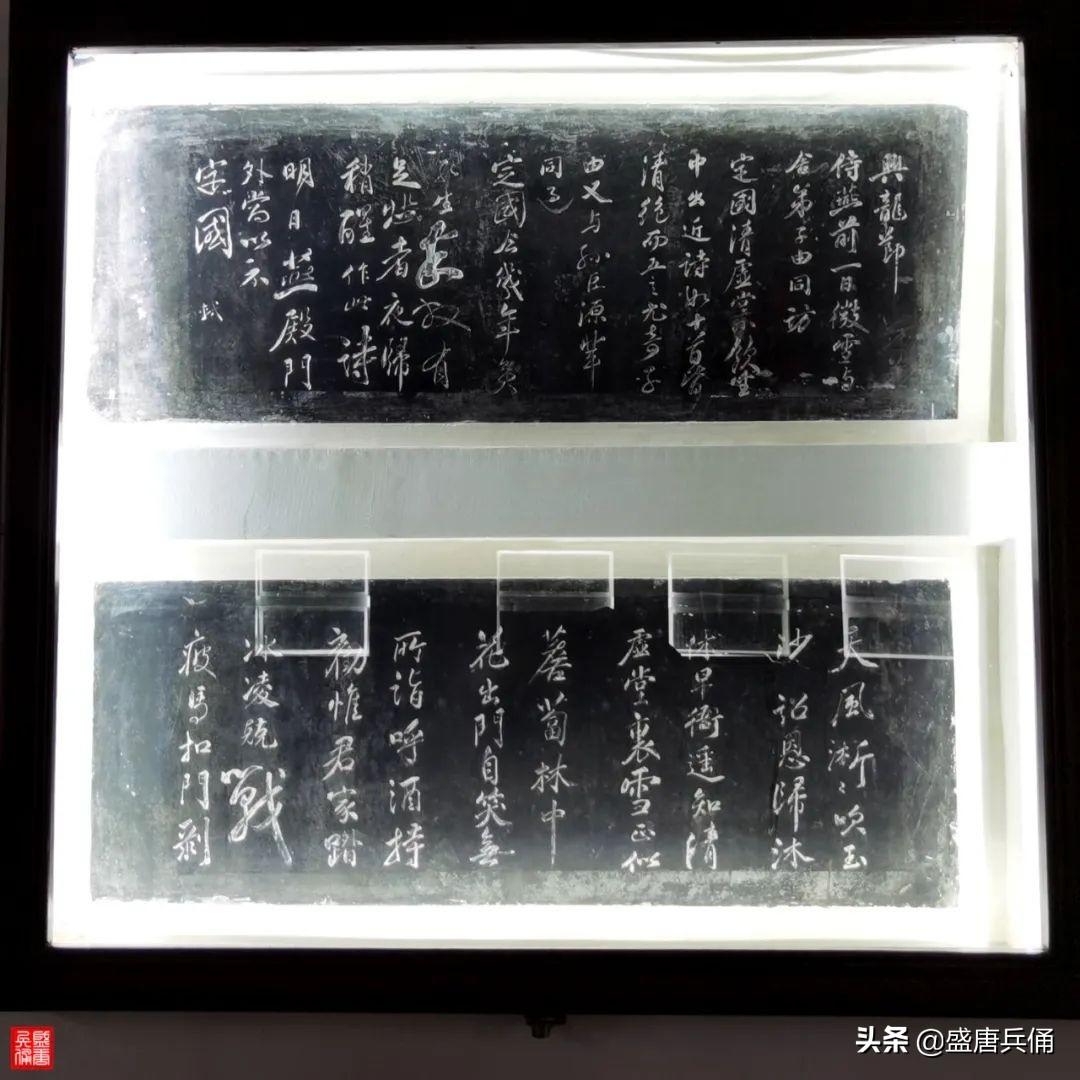 興龍節
侍燕前一日微雪与
舍弟子由同訪
定國清虛堂飲坐
中出近詩數十首皆
清絕而五言尤奇子
由又与孫巨源輩
同過
定國今幾年矣
生 有
足悲者夜歸
稍醒作此詩
明日燕殿門
外當以示
定國 軾
天風淅〻吹玉
沙詔恩歸沐
休早衙遥知清
虛堂裏雪正似
薝蔔林中
花出門自笑無
所詣呼酒持
勸惟君家踏
冰凌兢戰
疲馬扣門剝
盛唐兵俑
头条 @盛唐兵俑